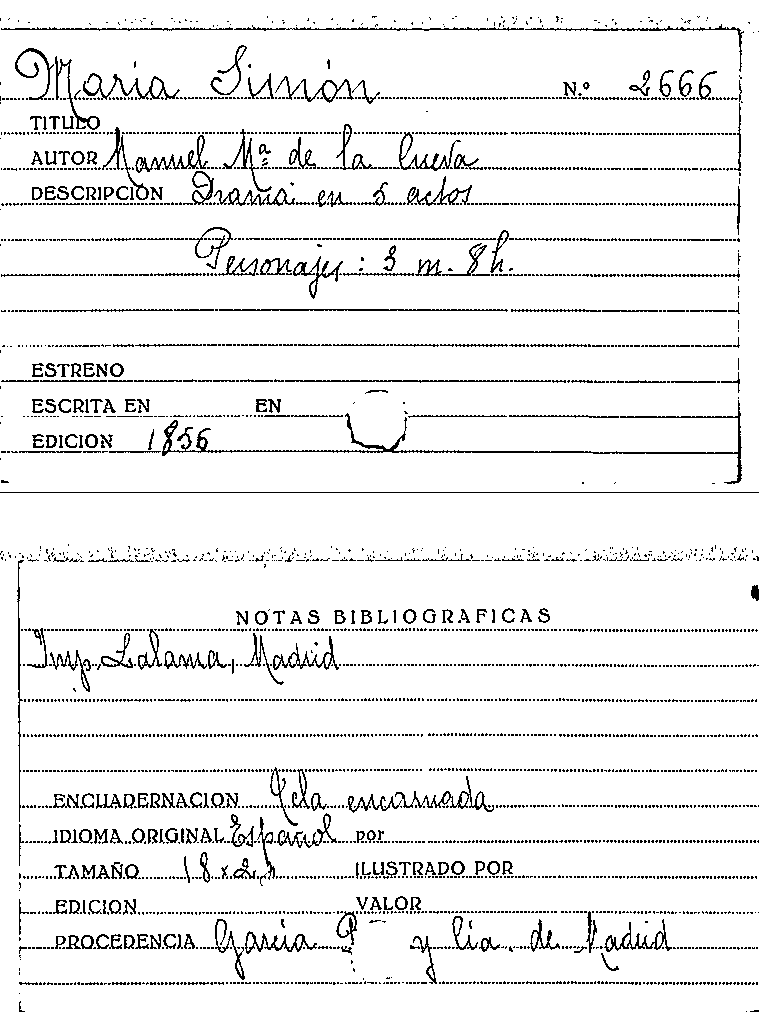 María Simón N.º 2666
TITULO
AUTOR Manuel Mª de la Cueva
DESCRIPCIÓN Drama en 5 actos
Personajes: 3 m. 8 h.
ESTRENO
ESCRITA EN EN
EDICION 1856
NOTAS BIBLIOGRAFICAS
Imp. Lalama, Madrid
ENCUADERNACION Tela encarnada
IDIOMA ORIGINAL Español por
TAMAÑO 18 x ILUSTRADO POR
EDICION VALOR
PROCEDENCIA García y Cia. de Madrid